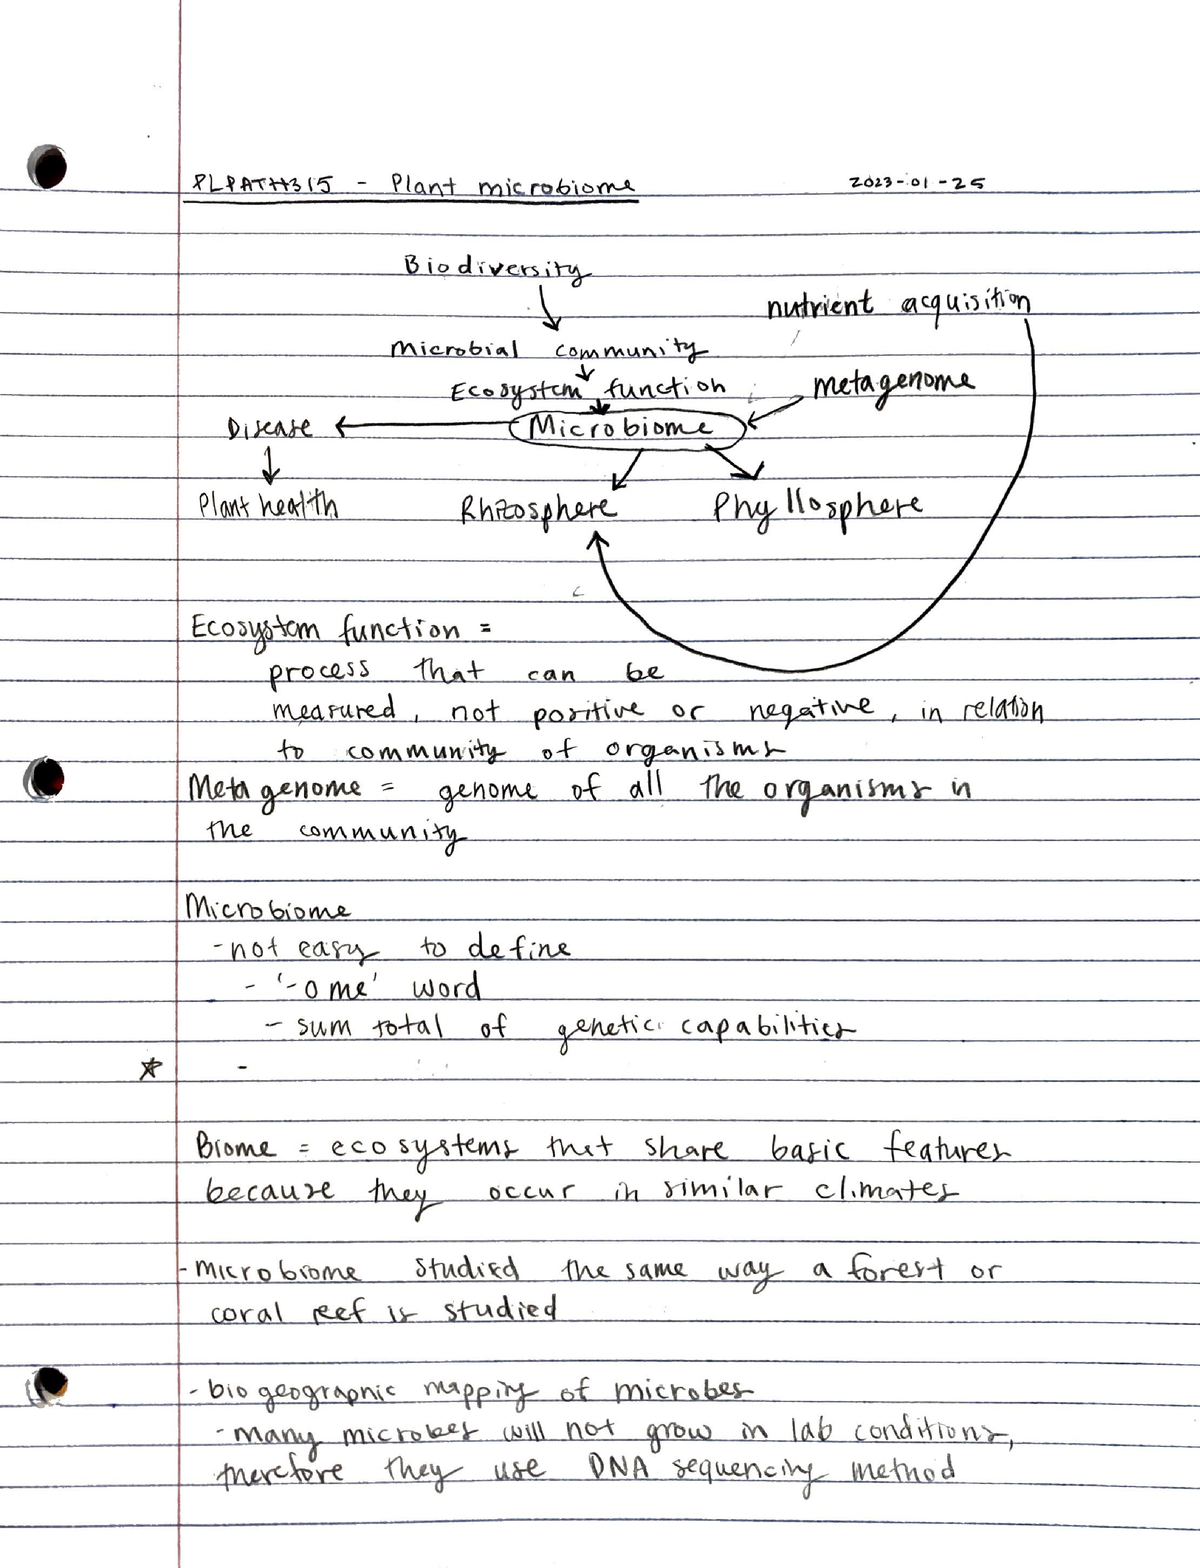 PLPATH315 - Plant microbiome 2023-01-25
Biodiversity
nutrient acquisition
Microbial community
Ecosystem function
metagenome
Disease
Microbiome
Plant health
Rhizosphere
Phyllosphere
Ecosystem function =
process that can be
measured, not positive or negative, in relation
to community of organisms
Metagenome = genome of all the organisms in
the community
Microbiome
- not easy to define
- '-ome' word
- sum total of genetic capabilities
☆ -
Biome = ecosystems that share basic features
because they occur in similar climates
- microbiome studied the same way a forest or
coral reef is studied
- biogeographic mapping of microbes
- many microbes will not grow in lab conditions,
therefore they use DNA sequencing method